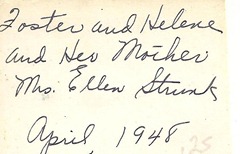 Foster and Helene
and Her Mother
Mrs. Ellen Strunk
April 1948
25